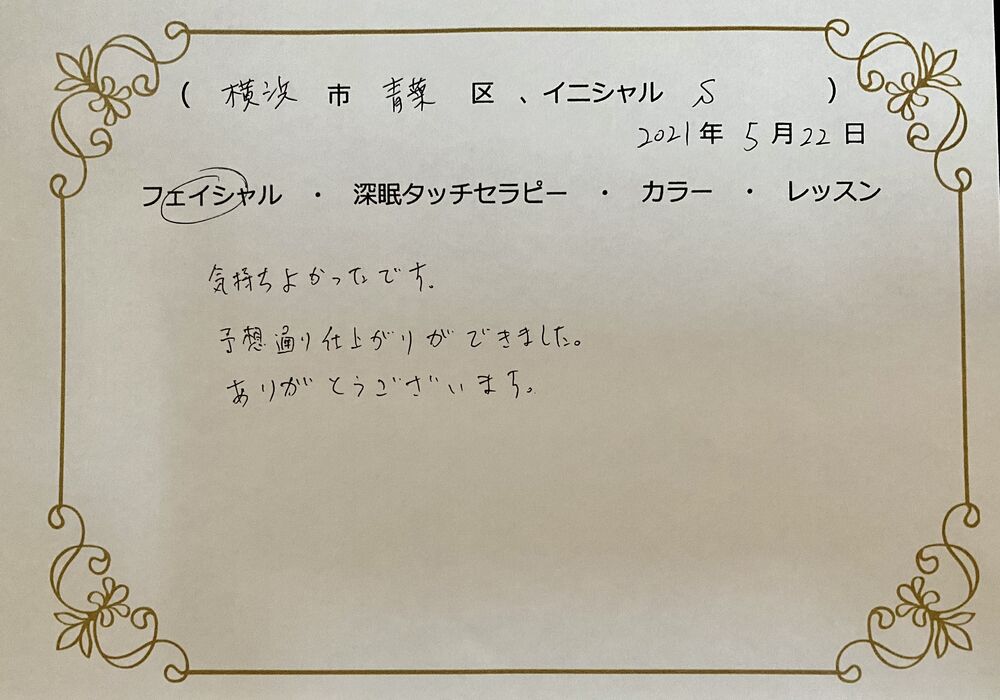 ( 横浜 市 青葉 区 、イニシャル S )
2021年 5月22日
フェイシャル ・ 深眠タッチセラピー ・ カラー ・ レッスン
気持ちよかったです。
予想通り仕上がりができました。
ありがとうございます。